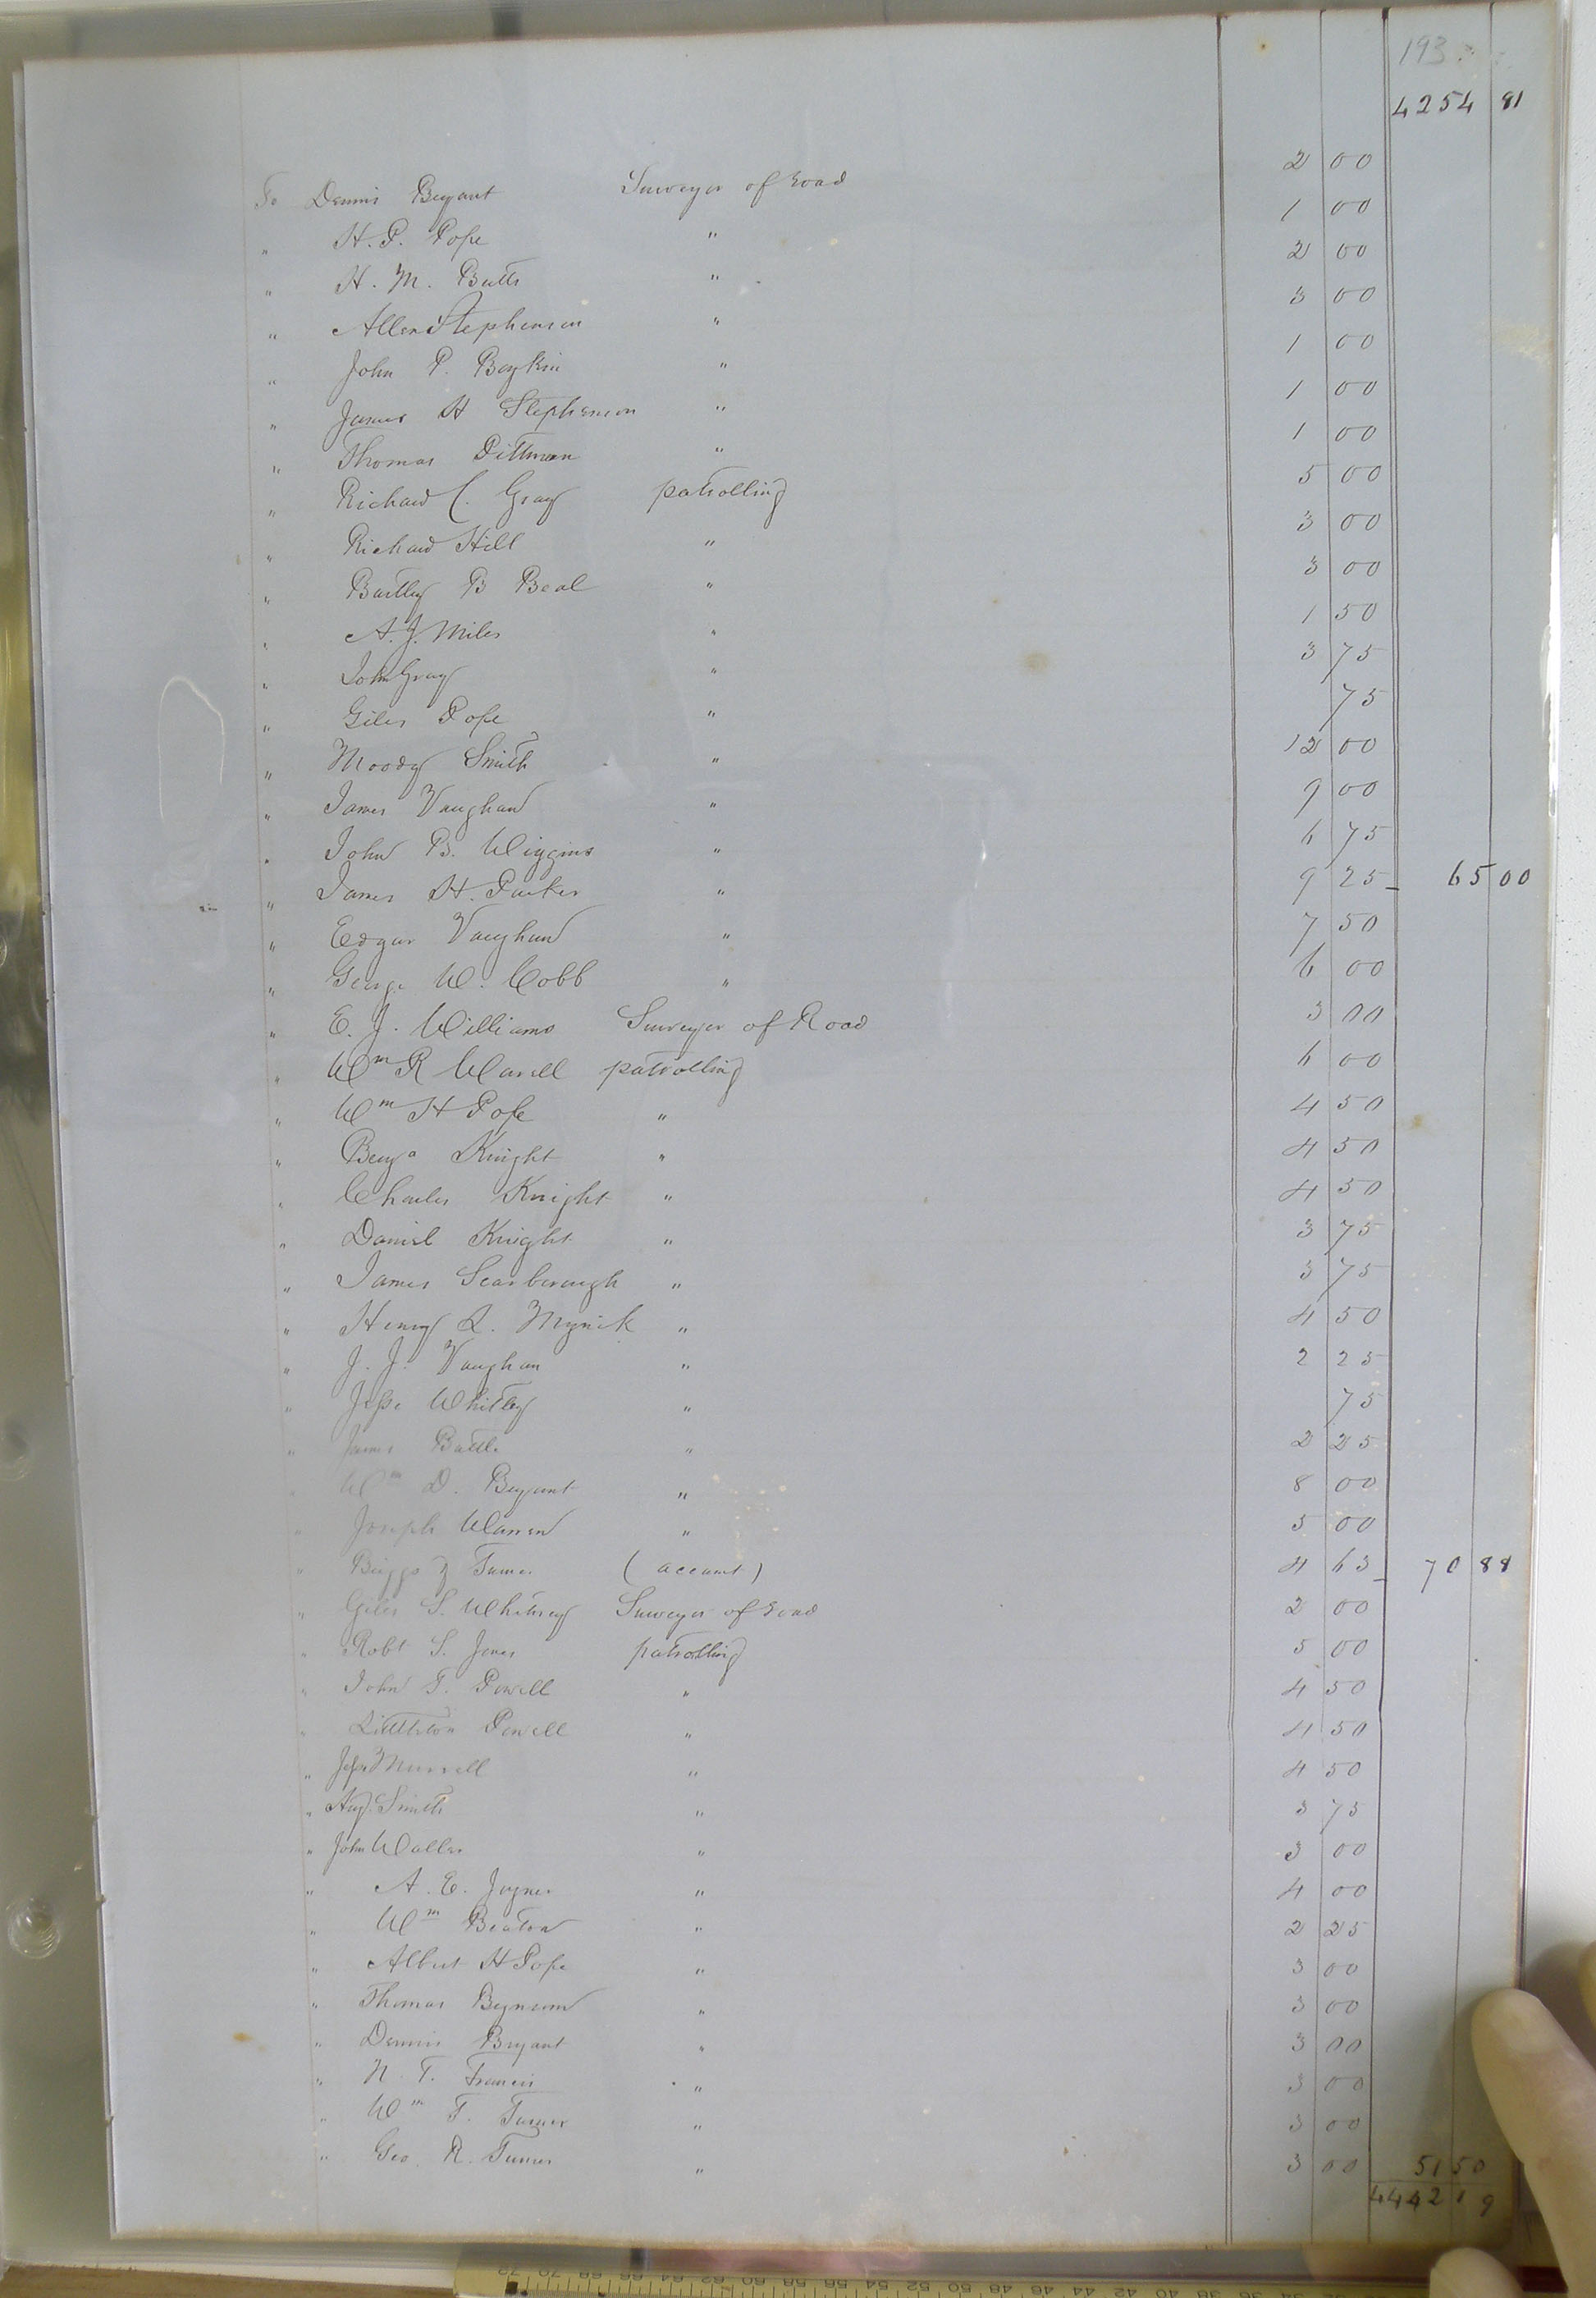 193
4254 81
To Dennis Bryant Surveyor of road 2 00
" H. P. Pope " 1 00
" H. M. Butts " 2 00
" Allen Stephenson " 3 00
" John P. Boykin " 1 00
" James H Stephenson " 1 00
" Thomas Pittman " 1 00
" Richard C. Gray patrolling 5 00
" Richard Hill " 3 00
" Bartley B Beal " 3 00
" A. J. Miles " 1 50
" John Gray " 3 75
" Giles Pope " 75
" Moody Smith " 12 00
" James Vaughan " 9 00
" John B. Wiggins " 6 75
" James H. Parker " 9 25 65 00
" Edgar Vaughan " 7 50
" George W. Cobb " 6 00
" E. J. Williams Surveyor of Road 3 00
" Wm R Warell patrolling 6 00
" Wm H Pope " 4 50
" Benja Knight " 4 50
" Charles Knight " 4 50
" Daniel Knight " 3 75
" James Scarborough " 3 75
" Henry L. Myrick " 4 50
" J. J. Vaughan " 2 25
" Jesse Whitley " 75
" James Battle " 2 25
" Wm D. Bryant " 8 00
" Joseph Warren " 5 00
" Briggs & Turner (account) 4 63 70 88
" Giles S. Whitney Surveyor of road 2 00
" Robt S. Jones patrolling 5 00
" John T. Powell " 4 50
" Littleton Powell " 4 50
" Jesse Murrell " 4 50
" Smith " 3 75
" John Waller " 3 00
" A. E. Joyner " 4 00
" Wm Beaton " 2 25
" Albert H Pope " 3 00
" Thomas Bynum " 3 00
" Dennis Bryant " 3 00
" N. T. Francis " 3 00
" Wm T. Turner " 3 00
" Geo. R. Turner " 3 00 51 50
4442 19